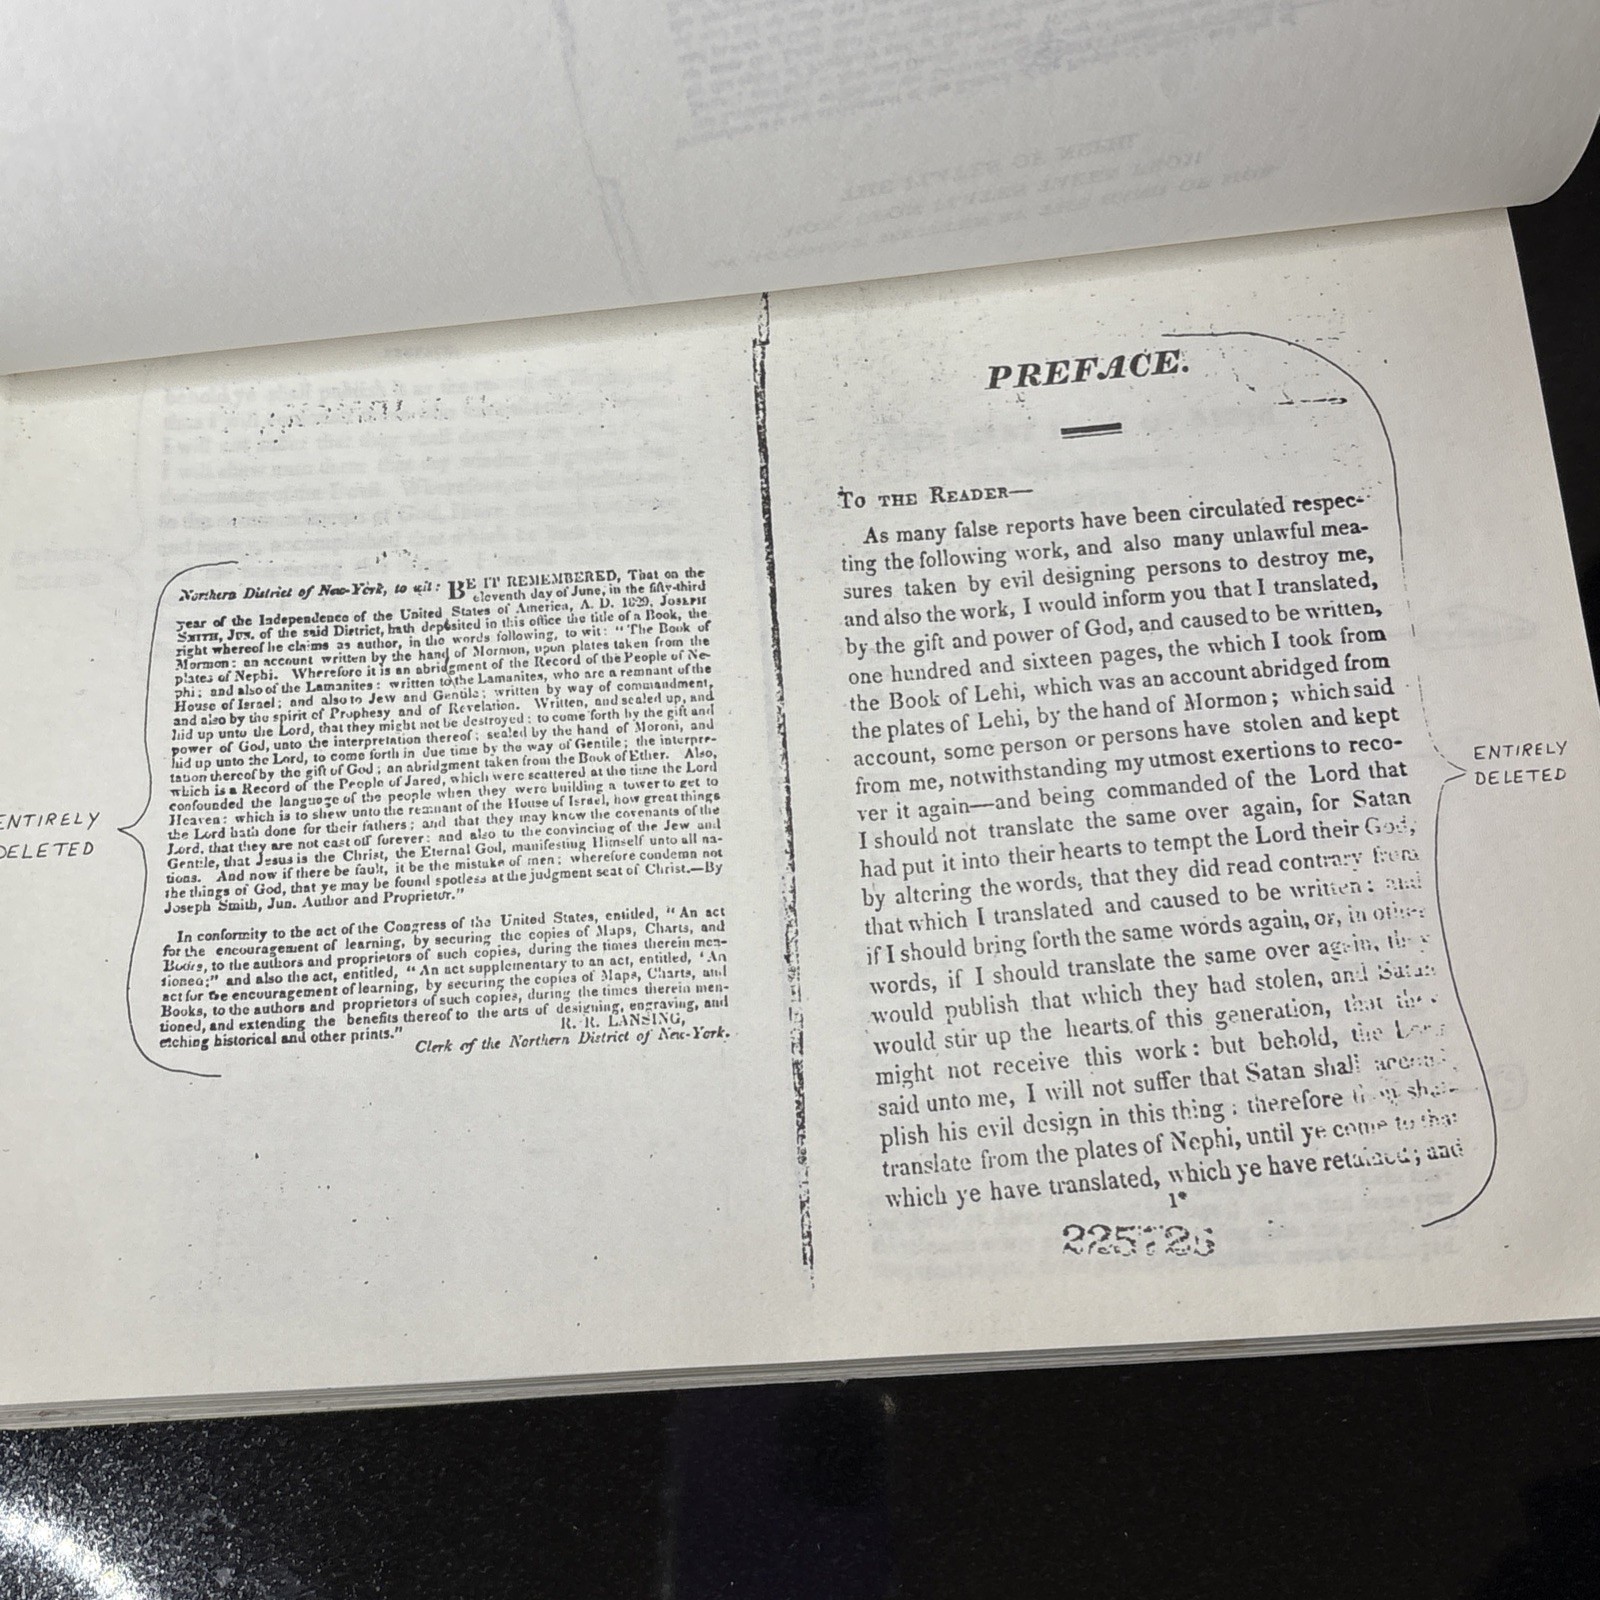 ENTIRELY
DELETED
Northern District of New-York, to wit: BE IT REMEMBERED, That on the
eleventh day of June, in the fifty-third
year of the Independence of the United States of America, A. D. 1829, JOSEPH
SMITH, JUN. of the said District, hath deposited in this office the title of a Book, the
right whereof he claims as author, in the words following, to wit: "The Book of
Mormon: an account written by the hand of Mormon, upon plates taken from the
plates of Nephi. Wherefore it is an abridgment of the Record of the People of Ne-
phi; and also of the Lamanites: written to the Lamanites, who are a remnant of the
House of Israel; and also to Jew and Gentile; written by way of commandment,
and also by the spirit of Prophesy and of Revelation. Written, and sealed up, and
hid up unto the Lord, that they might not be destroyed; to come forth by the gift and
power of God, unto the interpretation thereof; sealed by the hand of Moroni, and
hid up unto the Lord, to come forth in due time by the way of Gentile; the interpre-
tation thereof by the gift of God; an abridgment taken from the Book of Ether. Also,
which is a Record of the People of Jared, which were scattered at the time the Lord
confounded the language of the people when they were building a tower to get to
Heaven: which is to shew unto the remnant of the House of Israel, how great things
the Lord hath done for their fathers; and that they may know the covenants of the
Lord, that they are not cast off forever; and also to the convincing of the Jew and
Gentile, that Jesus is the Christ, the Eternal God, manifesting Himself unto all na-
tions. And now if there be fault, it be the mistake of men; wherefore condemn not
the things of God, that ye may be found spotless at the judgment seat of Christ.—By
Joseph Smith, Jun. Author and Proprietor."
In conformity to the act of the Congress of the United States, entitled, "An act
for the encouragement of learning, by securing the copies of Maps, Charts, and
Books, to the authors and proprietors of such copies, during the times therein men-
tioned;" and also the act, entitled, "An act supplementary to an act, entitled, 'An
act for the encouragement of learning, by securing the copies of Maps, Charts, and
Books, to the authors and proprietors of such copies, during the times therein men-
tioned, and extending the benefits thereof to the arts of designing, engraving, and
etching historical and other prints."
R. R. LANSING,
Clerk of the Northern District of New-York.
PREFACE.
TO THE READER—
As many false reports have been circulated respec-
ting the following work, and also many unlawful mea-
sures taken by evil designing persons to destroy me,
and also the work, I would inform you that I translated,
by the gift and power of God, and caused to be written,
one hundred and sixteen pages, the which I took from
the Book of Lehi, which was an account abridged from
the plates of Lehi, by the hand of Mormon; which said
account, some person or persons have stolen and kept
from me, notwithstanding my utmost exertions to reco-
ver it again—and being commanded of the Lord that
I should not translate the same over again, for Satan
had put it into their hearts to tempt the Lord their God,
by altering the words, that they did read contrary from
that which I translated and caused to be written; and
if I should bring forth the same words again, or, in other
words, if I should translate the same over again, they
would publish that which they had stolen, and Satan
would stir up the hearts of this generation, that they
might not receive this work: but behold, the Lord
said unto me, I will not suffer that Satan shall accom-
plish his evil design in this thing: therefore thou shalt
translate from the plates of Nephi, until ye come to that
which ye have translated, which ye have retained; and
1*
225726
ENTIRELY
DELETED